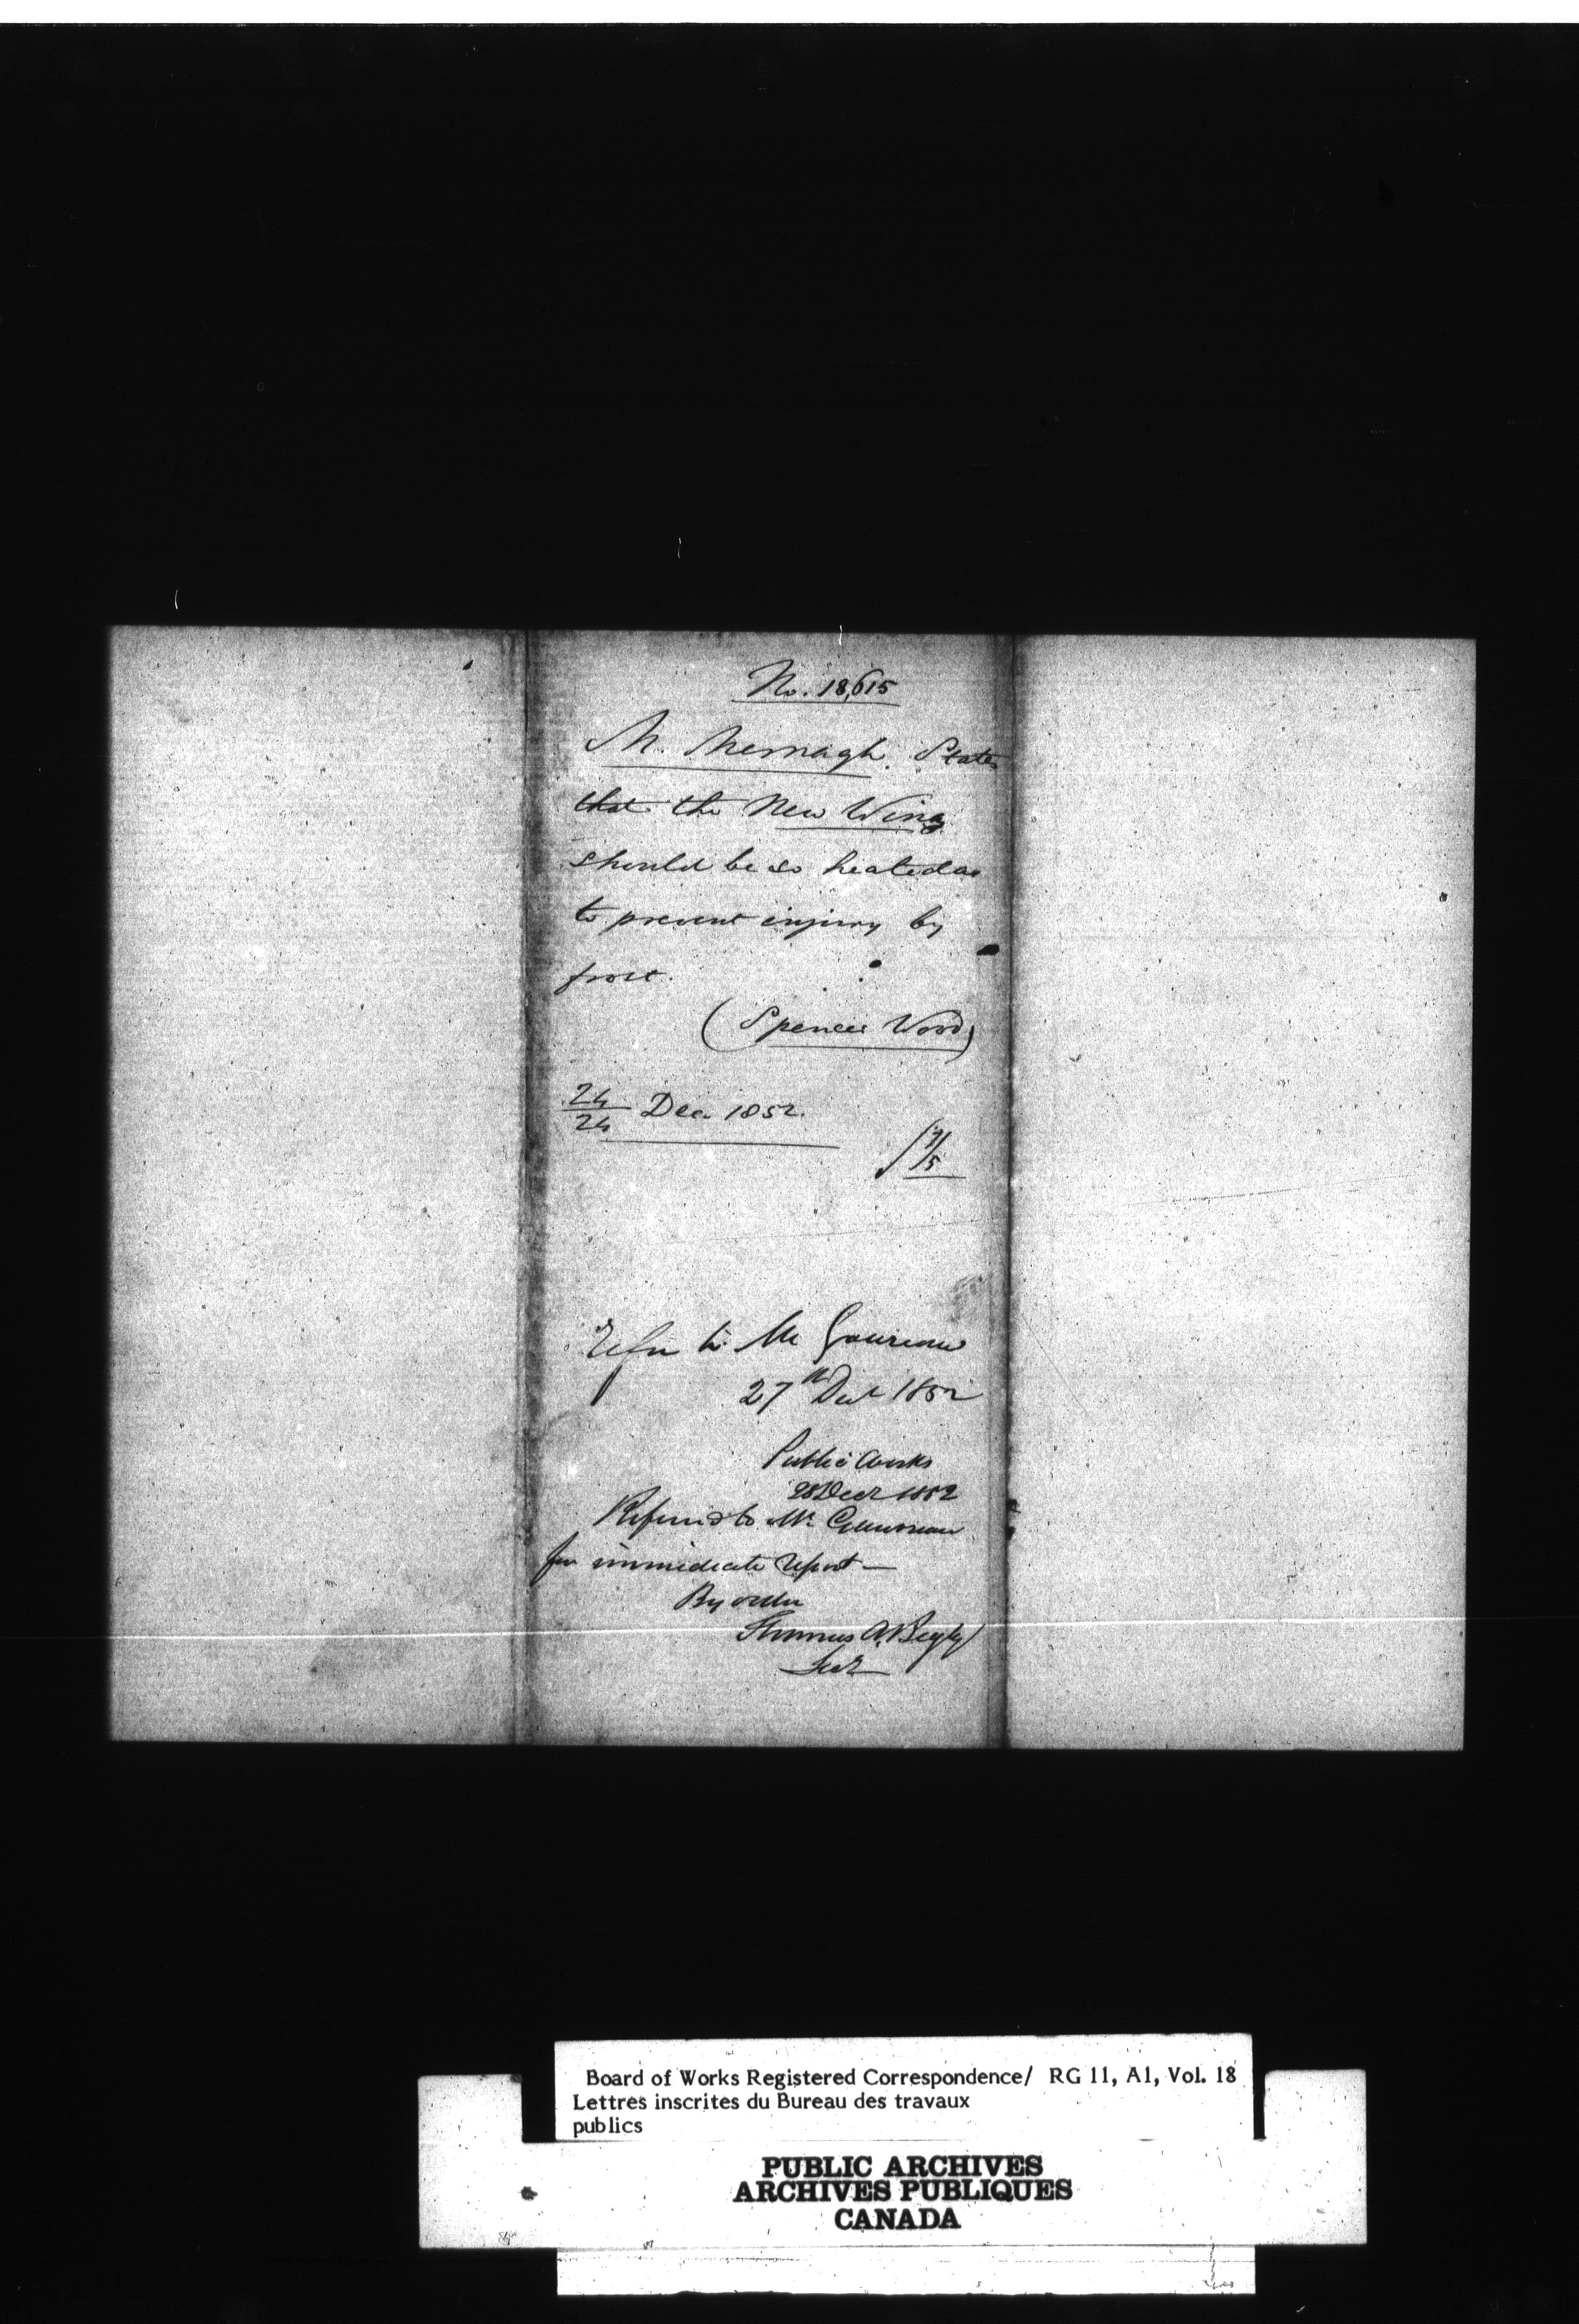 No. 18,615
M. Mernagh. States
that the New Wing
should be so heated as
to prevent injury by
frost.
(Spencer Wood)
24/24 Dec. 1852.
Refer to Mr Gauvreau
27th Decr 1852
Public Works
28 Decr 1852
Referred to Mr Gauvreau
for immediate report —
By order
Thomas A. Begly
Secy
Board of Works Registered Correspondence/ RG 11, A1, Vol. 18
Lettres inscrites du Bureau des travaux
publics
PUBLIC ARCHIVES
ARCHIVES PUBLIQUES
CANADA